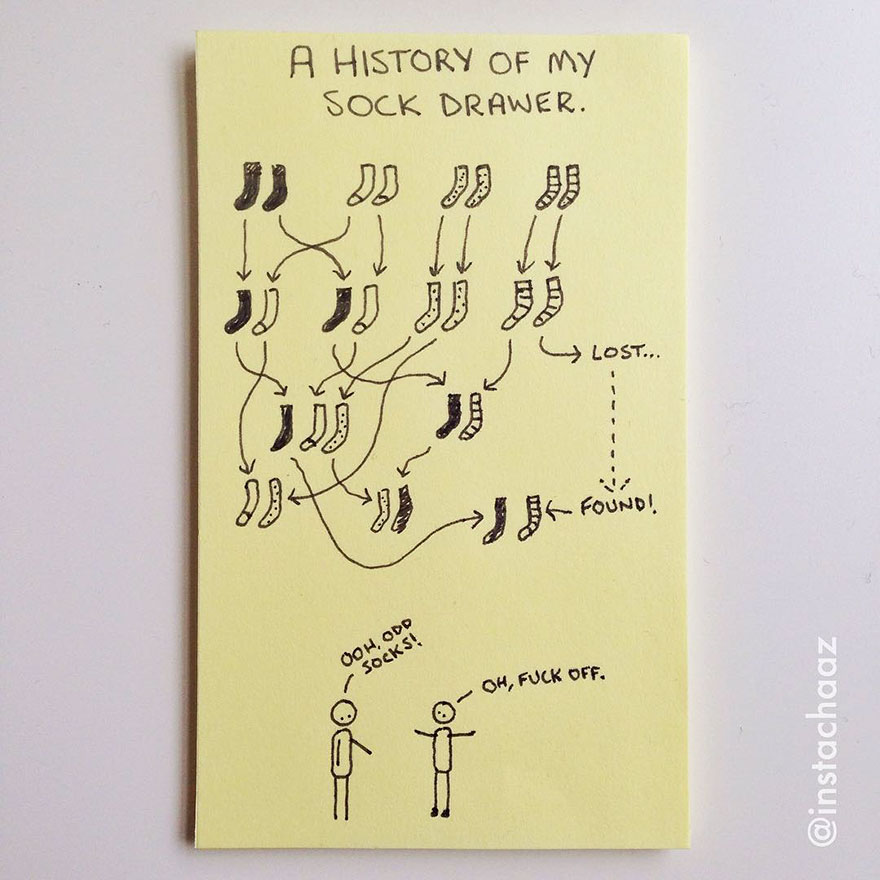 A HISTORY OF MY
SOCK DRAWER.
LOST...
FOUND!
OOH, ODD
SOCKS!
OH, FUCK OFF.
@instachaaz